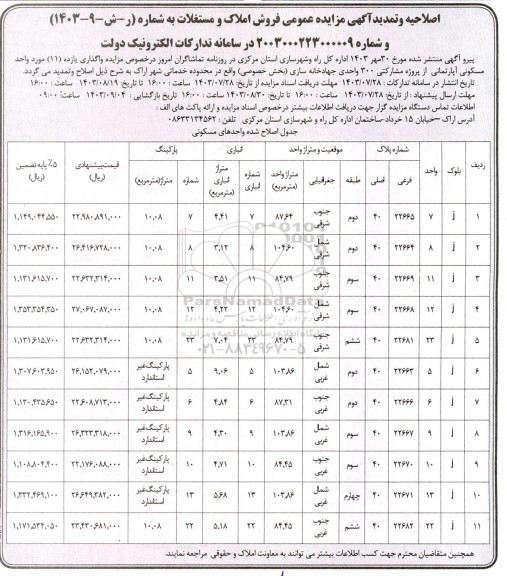 اصلاحیه وتمدیدآگهی مزایده عمومی فروش املاک و مستغلات به شماره (ر-ش-۹-۱۴۰۳)
و شماره ۲۰۰۳۰۰۰۲۲۳۰۰۰۰۰۹ در سامانه تدارکات الکترونیک دولت
پیرو آگهی منتشر شده مورخ ۳۰مهر ۱۴۰۳ اداره کل راه وشهرسازی استان مرکزی در روزنامه تماشاگران امروز درخصوص مزایده واگذاری یازده (۱۱) مورد واحد
مسکونی آپارتمانی از پروژه مشارکتی ۳۰۰ واحدی جهادخانه سازی (بخش خصوصی) واقع در محدوده خدماتی شهر اراک به شرح ذیل اصلاح وتمدید می گردد.
تاریخ انتشار در سامانه تدارکات : ۱۴۰۳/۰۷/۲۸ ساعت : ۱۶:۰۰ مهلت دریافت اسناد مزایده از تاریخ: ۱۴۰۳/۰۷/۲۸ ساعت : ۱۶:۰۰ تا تاریخ ۱۴۰۳/۰۸/۱۹ ساعت : ۱۶:۰۰
مهلت ارسال پیشنهاد: از تاریخ: ۱۴۰۳/۰۷/۲۸ ساعت: ۱۶:۰۰ تا تاریخ: ۱۴۰۳/۰۸/۳۰ ساعت : ۱۶:۰۰ تاریخ بازگشایی : ۱۴۰۳/۰۹/۰۴ ساعت: ۰۹:۰۰
اطلاعات تماس دستگاه مزایده گزار جهت دریافت اطلاعات بیشتر درخصوص اسناد مزایده و ارائه پاکت های الف :
آدرس اراک –خیابان ۱۵ خرداد-ساختمان اداره کل راه و شهرسازی استان مرکزی تلفن : ۰۸۶۳۳۱۳۴۵۶۲
جدول اصلاح شده واحدهای مسکونی
ردیف بلوک واحد شماره پلاک موقعیت و متراژ واحد انباری پارکینگ قیمت‌پیشنهادی (ریال) ۵٪ پایه تضمین (ریال)
فرعی اصلی طبقه جغرافیایی متراژ واحد (مترمربع) شماره انباری متراژ انباری (مترمربع) شماره متراژ(مترمربع)
۱ j ۷ ۲۲۶۶۵ ۴۰ دوم جنوب شرقی ۸۷,۶۴ ۷ ۴,۴۱ ۷ ۱۰,۰۸ ۲۲,۹۸۰,۸۹۱,۰۰۰ ۱,۱۴۹,۰۴۴,۵۵۰
۲ j ۸ ۲۲۶۶۴ ۴۰ دوم شمال شرقی ۱۰۴,۶۰ ۸ ۳,۱۲ ۸ ۱۰,۰۸ ۲۶,۴۱۶,۷۲۸,۰۰۰ ۱,۳۲۰,۸۳۶,۴۰۰
۳ j ۱۱ ۲۲۶۶۹ ۴۰ سوم جنوب شرقی ۸۴,۷۹ ۱۱ ۳,۵۱ ۱۱ ۱۰,۰۸ ۲۲,۶۳۲,۳۱۴,۰۰۰ ۱,۱۳۱,۶۱۵,۷۰۰
۴ j ۱۲ ۲۲۶۶۸ ۴۰ سوم شمال شرقی ۱۰۴,۶۰ ۱۲ ۴,۲۲ ۱۲ ۱۰,۰۸ ۲۷,۰۶۷,۰۸۷,۰۰۰ ۱,۳۵۳,۳۵۴,۳۵۰
۵ j ۲۳ ۲۲۶۸۱ ۴۰ ششم جنوب شرقی ۸۴,۷۹ ۲۳ ۷,۰۴ ۲۳ ۱۰,۰۸ ۲۲,۶۳۲,۳۱۴,۰۰۰ ۱,۱۳۱,۶۱۵,۷۰۰
۶ j ۵ ۲۲۶۶۳ ۴۰ دوم شمال غربی ۱۰۳,۸۶ ۵ ۹,۰۶ ۵ پارکینگ‌غیر استاندارد ۲۶,۱۵۲,۰۷۹,۰۰۰ ۱,۳۰۷,۶۰۳,۹۵۰
۷ j ۶ ۲۲۶۶۶ ۴۰ دوم جنوب غربی ۸۷,۳۱ ۶ ۴,۸۴ ۶ پارکینگ‌غیر استاندارد ۲۲,۶۰۸,۷۱۳,۰۰۰ ۱,۱۳۰,۴۳۵,۶۵۰
۸ j ۹ ۲۲۶۶۷ ۴۰ سوم شمال غربی ۱۰۳,۸۶ ۹ ۴,۳۰ ۹ پارکینگ‌غیر استاندارد ۲۶,۳۲۳,۳۱۸,۰۰۰ ۱,۳۱۶,۱۶۵,۹۰۰
۹ j ۱۰ ۲۲۶۷۰ ۴۰ سوم جنوب غربی ۸۴,۴۵ ۱۰ ۴,۷۱ ۱۰ پارکینگ‌غیر استاندارد ۲۲,۱۷۶,۰۸۸,۰۰۰ ۱,۱۰۸,۸۰۴,۴۰۰
۱۰ j ۱۳ ۲۲۶۷۱ ۴۰ چهارم شمال غربی ۱۰۳,۸۶ ۱۳ ۵,۶۸ ۱۳ پارکینگ‌غیر استاندارد ۲۶,۶۴۹,۳۸۲,۰۰۰ ۱,۳۳۲,۴۶۹,۱۰۰
۱۱ j ۲۲ ۲۲۶۸۲ ۴۰ ششم جنوب غربی ۸۴,۴۵ ۲۲ ۵,۱۸ ۲۲ ۱۰,۰۸ ۲۳,۴۳۰,۶۸۱,۰۰۰ ۱,۱۷۱,۵۳۴,۰۵۰
ParsNamadData
۰۲۱-۸۸۳۴۹۶۷۰-۵
همچنین متقاضیان محترم جهت کسب اطلاعات بیشتر می توانند به معاونت املاک و حقوقی مراجعه نمایند.